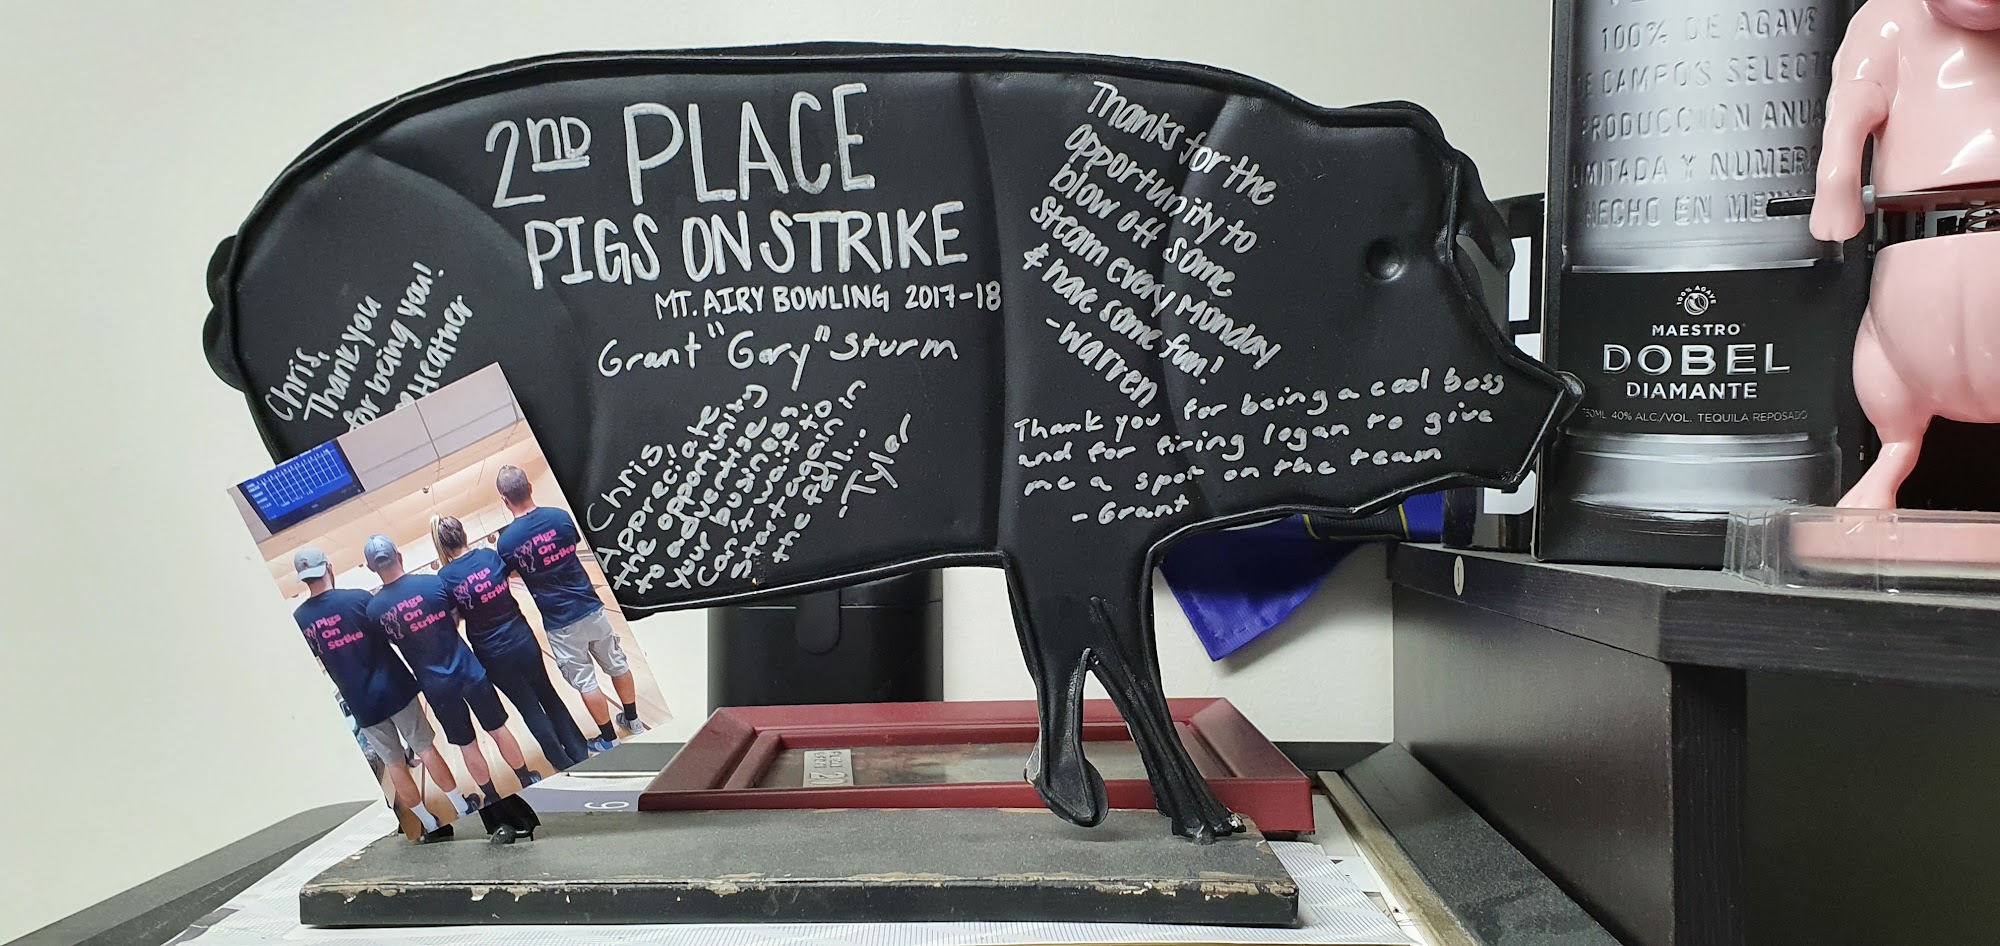 2ND PLACE
PIGS ON STRIKE
MT. AIRY BOWLING 2017-18
Grant "Gary" Sturm
Chris,
Thank you
for being you!
Heather
Chris,
Appreciate
the opportunity
to advertise
your business.
Can't wait to
start again in
the fall...
-Tyler
Thanks for the
opportunity to
blow off some
steam every Monday
& have some fun!
-Warren
Thank you for being a cool boss
and for firing logan to give
me a spot on the team
- Grant
Pigs
On
Strike
Pigs
On
Strike
Pigs
On
Strike
Pigs
On
Strike
100% DE AGAVE
DE CAMPOS SELECT
PRODUCCION ANUA
LIMITADA Y NUMERA
HECHO EN ME
100% AGAVE
MAESTRO
DOBEL
DIAMANTE
750ML 40% ALC./VOL. TEQUILA REPOSADO
9